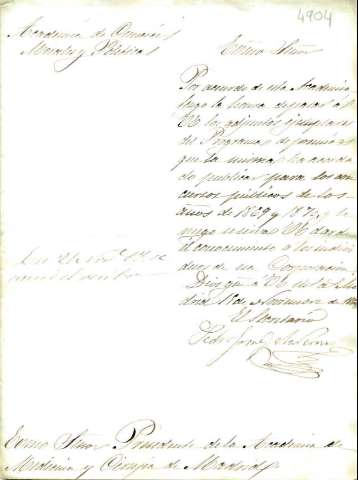 4904
Academia de Ciencias
Morales y Políticas
Excmo Señor
Por acuerdo de esta Academia
tengo la honra de pasar á
VE los adjuntos ejemplares
del Programa de premios
que la misma ha acorda
do publicar para los con
cursos públicos de los
años de 1869 y 1870, y le
ruego se sirva VE dar de
él conocimiento a los indivi
duos de esa Corporación.
Dios gue á VE Ma
drid de Noviembre de
El Secretario
Pedro
Excmo Señor Presidente de la Academia de
Medicina y Cirujía de Madrid